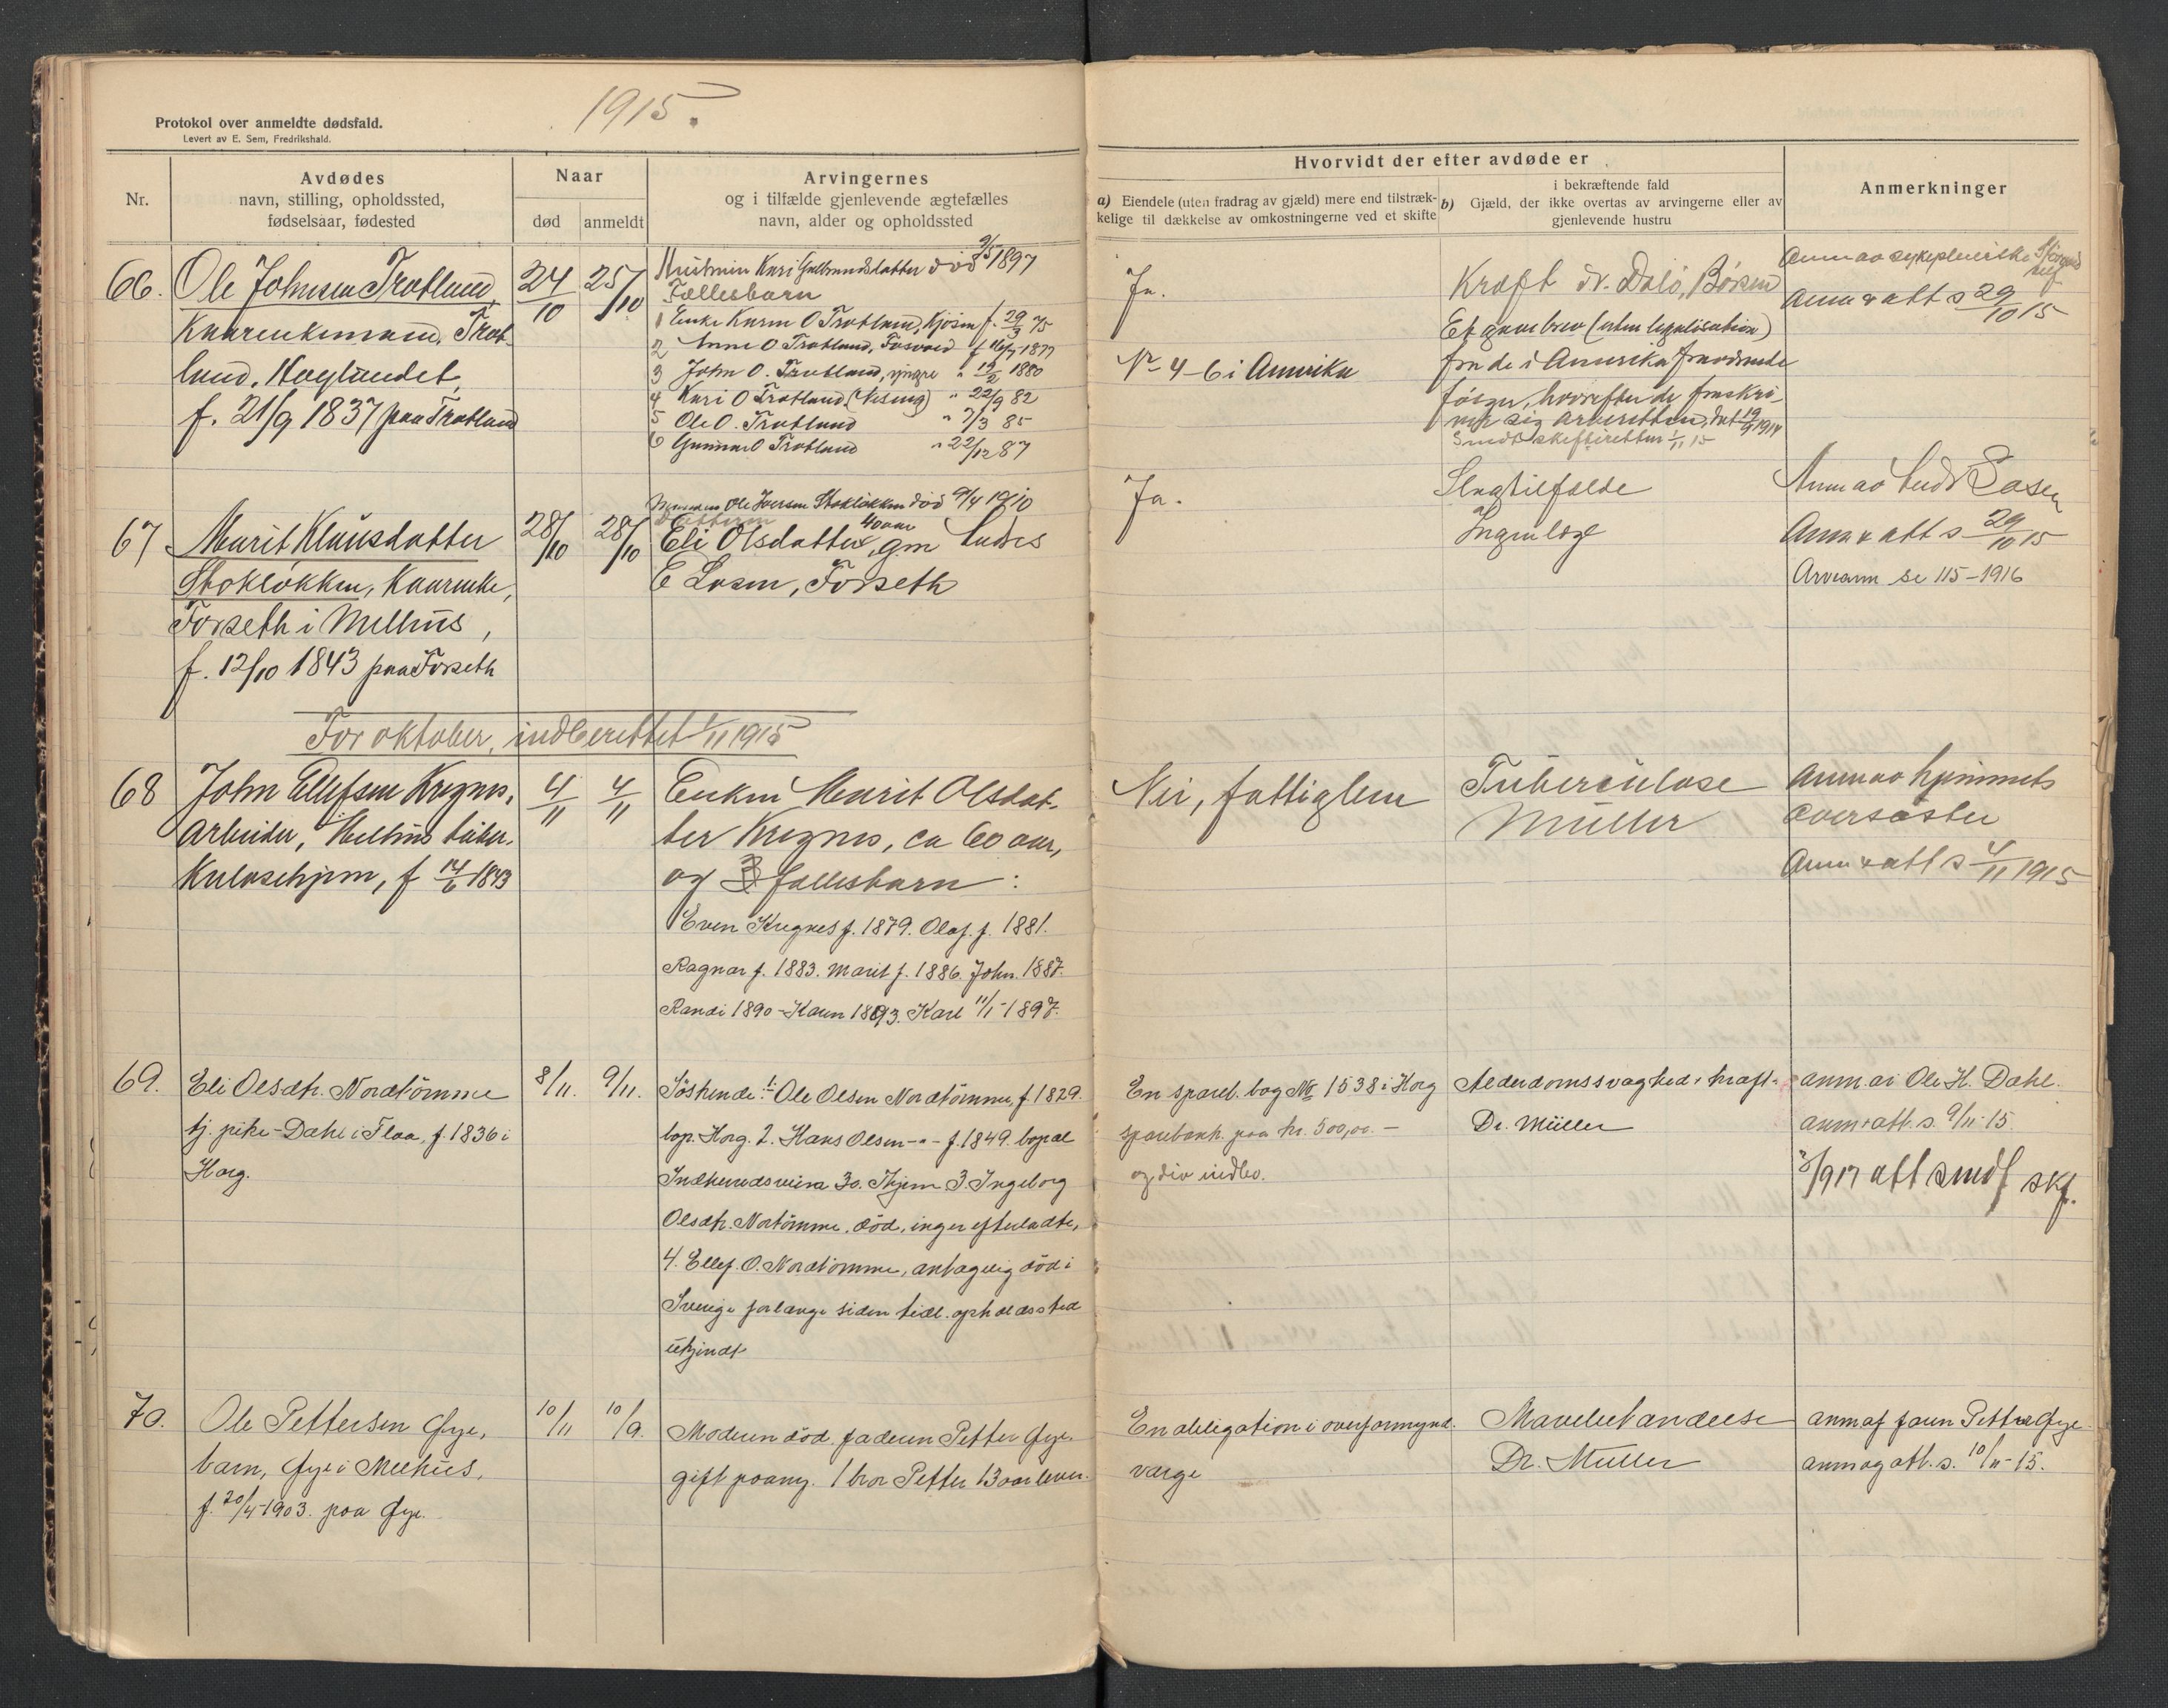 1915.
Protokol over anmeldte dødsfald.
Levert av E. Sem, Fredrikshald.
Nr.
Avdødes
navn, stilling, opholdssted,
fødselsaar, fødested
Naar
død
anmeldt
Arvingernes
og i tilfælde gjenlevende ægtefælles
navn, alder og opholdssted
Hvorvidt der efter avdøde er
a) Eiendele (uten fradrag av gjæld) mere end tilstræk-
kelige til dækkelse av omkostningerne ved et skifte
i bekræftende fald
b) Gjæld, der ikke overtas av arvingerne eller av
gjenlevende hustru
Anmerkninger
66.
Ole Johnsen Trotland,
Kaarenkemand, Trot-
land, Høylandet,
f. 21/9 1837 paa Trotland
24/10
25/10
Hustruen Kari Gulbrandsdatter død 9/5 1897
Fællesbarn
1 Enke Karen O Trotland, f. 29/3 75
2 Anne O Trotland, f 16/7 1877
3 John O. Trotland, yngre " 19/2 1880
4 Kari O Trotland " 22/9 82
5 Ole O. Trotland " 7/3 85
6 Gunnar O Trotland " 22/12 87
Ja.
Nr 4-6 i Amerika
Kræft dr. Dalø, Børsen
Et gavebrev (uten legalisation)
fra de i Amerika fraværende
hvorefter de fraskri-
ver sig arveretten, dat 19/9 1914
Sendt skifteretten 1/11 15
Anm av sykepleierske
Anm & att s 29/10 15
67
Marit Klausdatter
Stokløkken, Kaarenke,
Forseth i Melhus,
f. 12/10 1843 paa Forseth
28/10
28/10
Manden Ole Iversen Stokløkken død 9/4 1910
Datteren 40 aar
Eli Olsdatter, gm
E Losen, Forseth
Ja.
Slagtilfælde
Ingen læge
Anm av Losen
Anm & att s 29/10 15
Arveanm se 115-1916
For oktober, indberettet 1/11 1915
68
John Ellefsen Kregnes,
Arbeider, Melhus tuber-
kulosehjem, f 14/6 1843
4/11
4/11
Enken Marit Olsdat-
ter Kregnes, ca 60 aar,
og fællesbarn:
Even Kregnes f. 1879. Olaf. f. 1881.
Ragnar f. 1883. Marit f. 1886. John. 1887.
Randi 1890 - Karen 1893. Karl 11/1-1897.
Nei, fattiglem
Tuberculose
Müller
Anm av hjemmets
oversøster
Anm & att s 4/11 1915
69.
Eli Olsdtr. Nordtømme
tj. pike - Dahl i Flaa, f. 1836 i
Horg.
8/11.
9/11.
Søskende: 1. Ole Olsen Nordtømme, f. 1829.
bop. Horg. 2. Hans Olsen -"- f. 1849. bopæl
Indherredsveien 30. Thjem 3. Ingeborg
Olsdtr. Nortømme, død, ingen efterladte,
4. Ellef. O. Nordtømme, antagelig død i
Sverige forlænge siden tidl. opholdssted
ukjendt
En spareb. bog № 1538 i Horg
sparebank. paa kr. 500,00. -
og div indbo.
Alderdomssvaghed, kræft.
Dr. Müller
anm. av Ole H. Dahl.
anm & att. s. 9/11-15.
att sendt skf.
70.
Ole Pettersen Øye,
barn, Øye i Melhus,
f. 20/4-1903. paa Øye.
10/11
10/9.
Moderen død. faderen Petter Øye.
gift paany. 1 bror Petter 13 aar lever.
En obligation i overformynd.
værge
Mavebetændelse
Dr. Müller
anm af faren Petter Øye.
anm og att. s. 10/11-15.